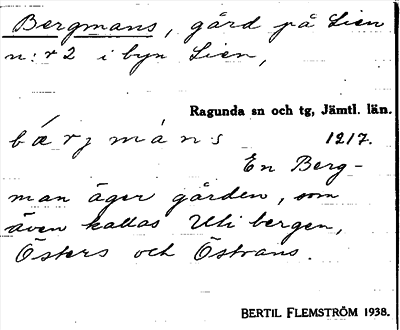 Bergmans, gård på Lien
n:r 2 i byn Lien,
Ragunda sn och tg, Jämtl. län.
bærjmàns 1217.
En Berg-
man äger gården, som
även kallas Uti bergen,
Östers och Östrans.
BERTIL FLEMSTRÖM 1938.